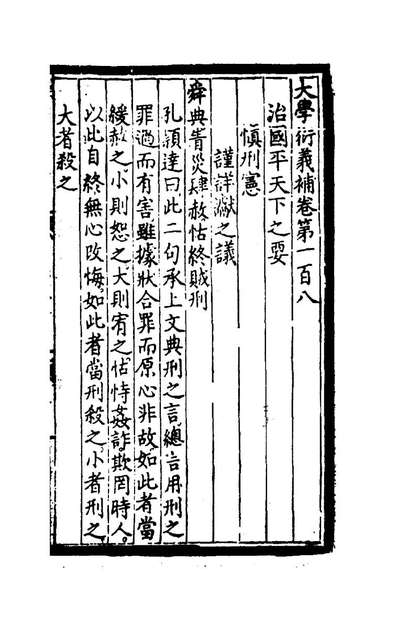 大學衍義補卷第一百八
治國平天下之要
慎刑憲
謹詳讞之議
舜典眚災肆赦怙終賊刑
孔穎達曰此二句承上文典刑之言總言用刑之
罪過而有害雖據狀合罪而原心非故如此者當
緩赦之小則恕之大則宥之怙恃姦詐欺罔時人
以此自終無心改悔如此者當刑殺之小者刑之
大者殺之